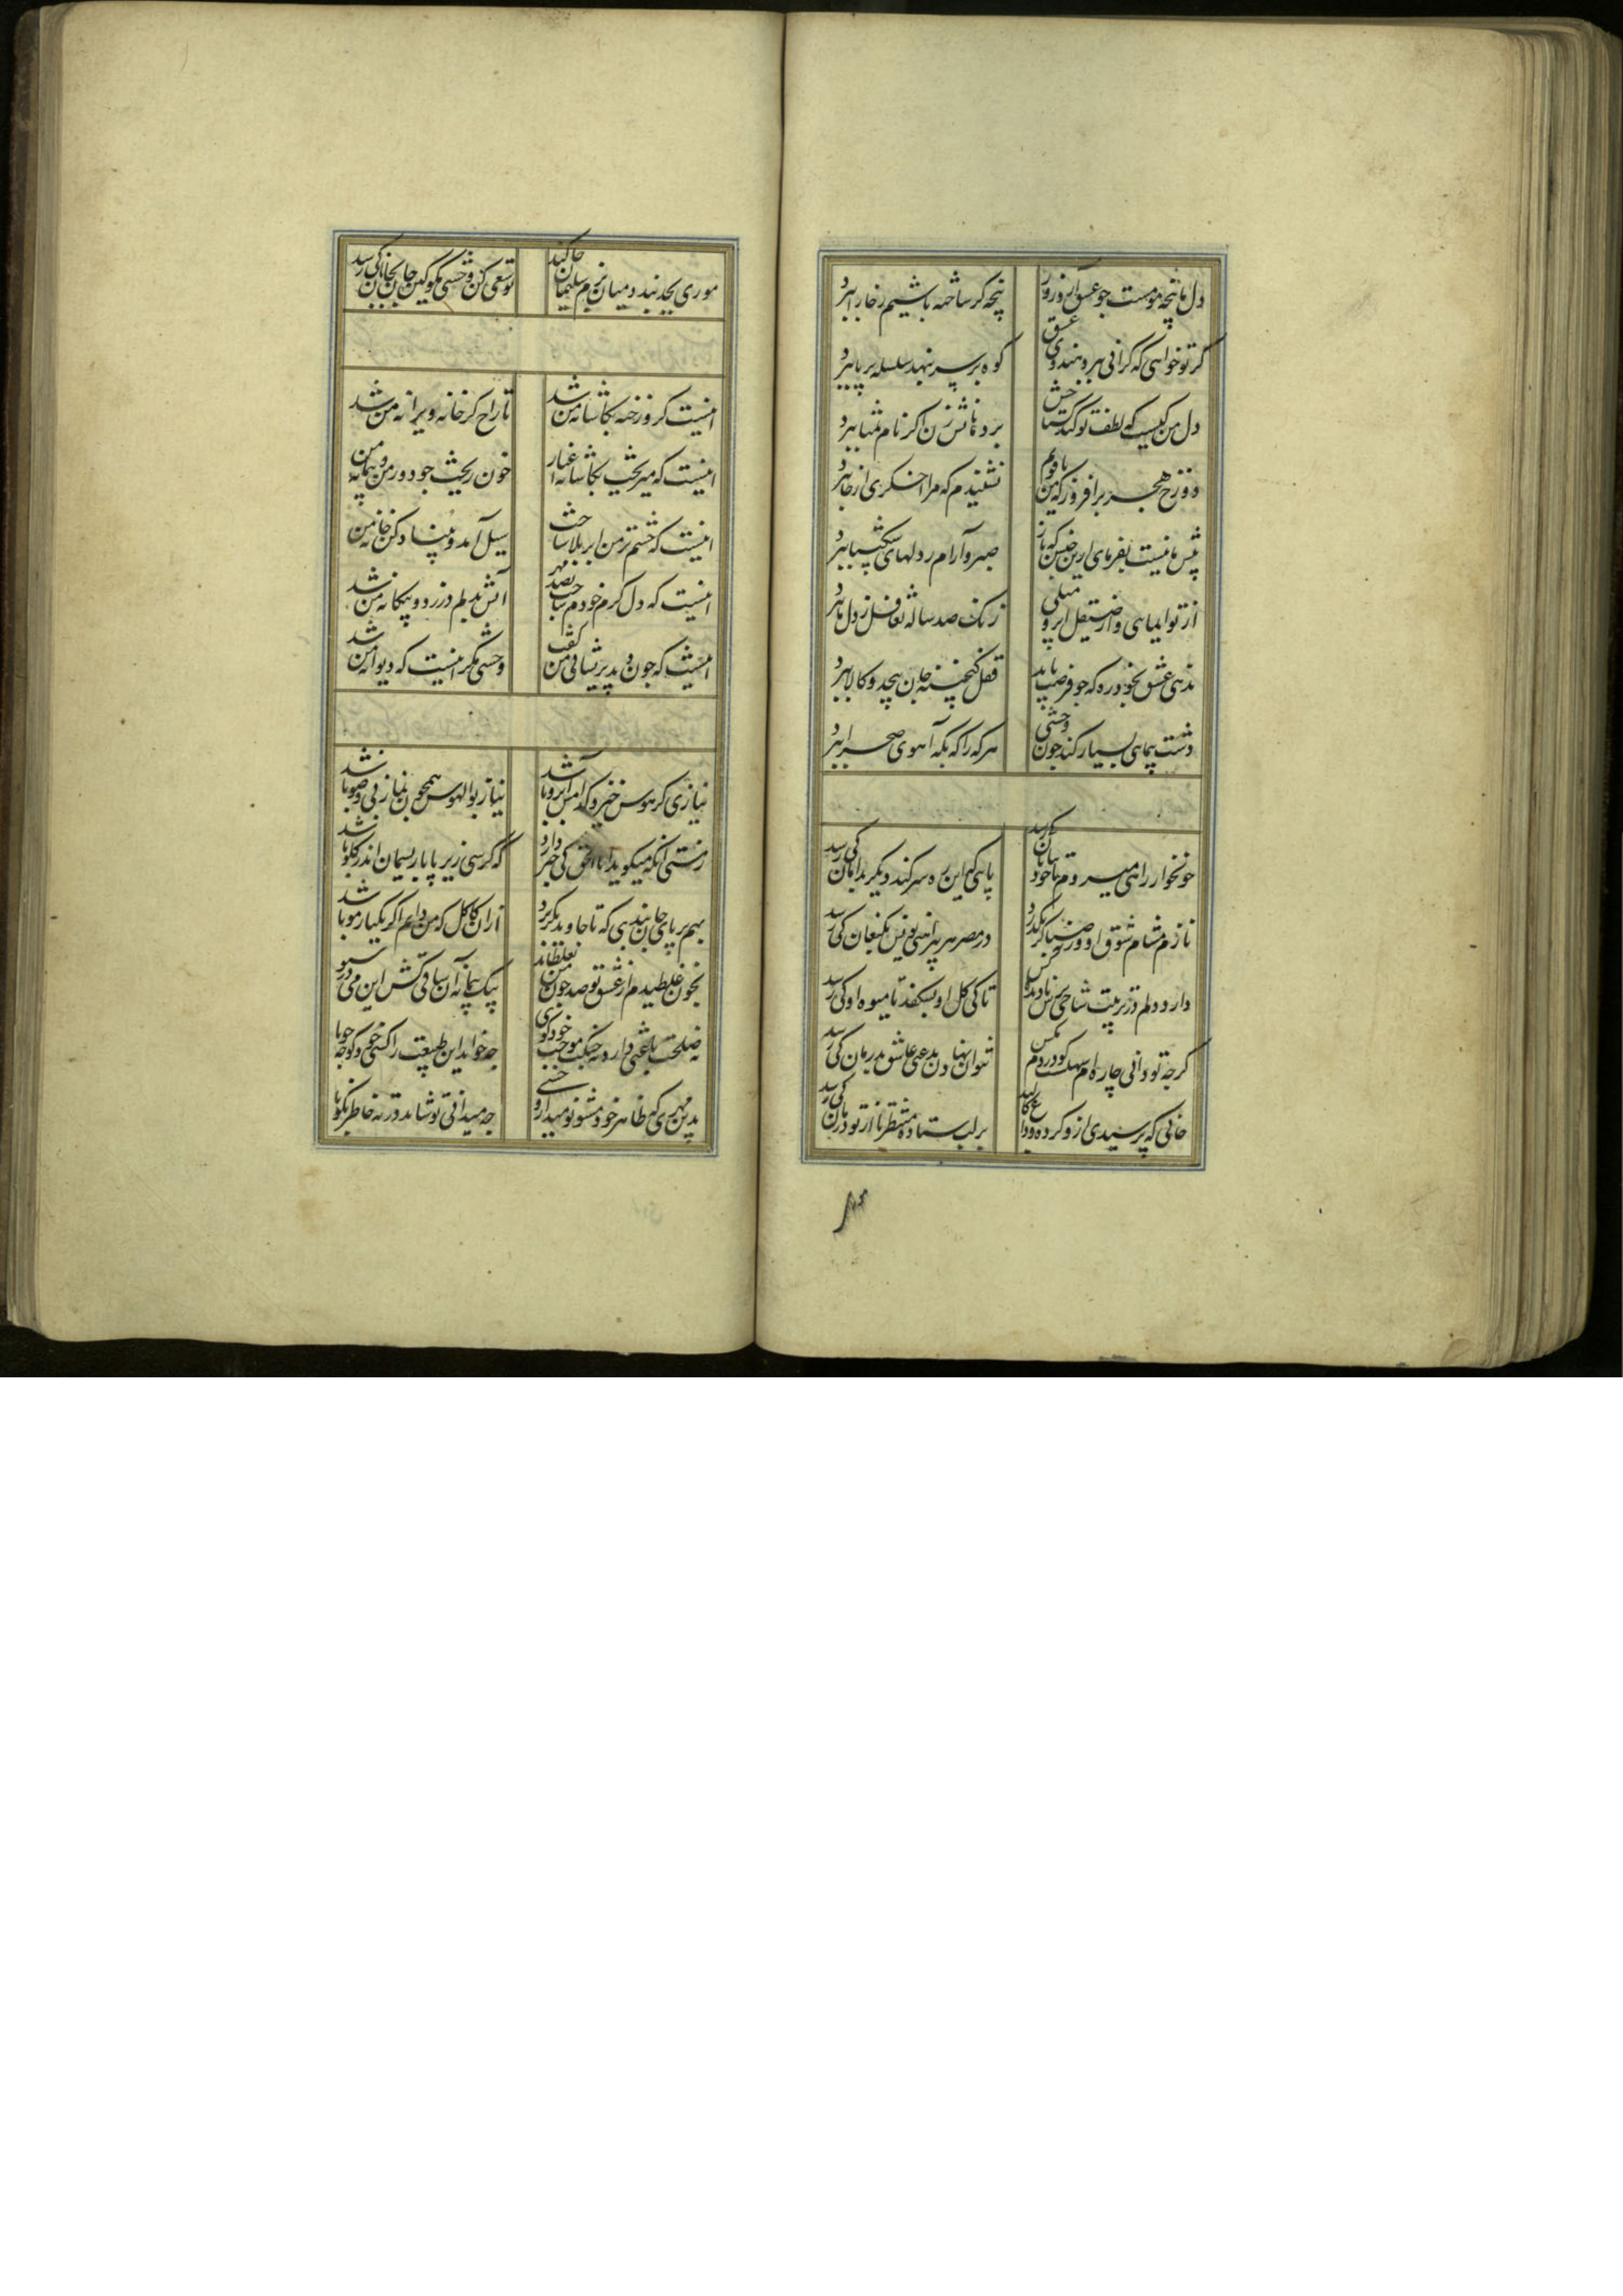 دل ما پنجه مومست جو عشق آرد زور
پنجه گر ساخته باشیم ز خارا ببرد
گر تو خواهی که گرانی ببرد بندوی عشق
کوه بر سر بنهد سلسله بر پا ببرد
دل من کیست که لطف تو کند بخشش
برد دشنامش زن اگر نام تمنا ببرد
دوزخ هجر برافروز که من باقویم
نشنیدم که مرا اخگری از جا ببرد
پیش ما نیست بفرمای ازین جنس که ناز
صبر و آرام ز دلهای شکیبا ببرد
از تو ایمایی و از صیقل ابرو میلی
زنک صد ساله تغافل ز دل ما ببرد
ندهی عشق بخود ره که جو فرصت یابد
قفل گنجینه جان پیچد و کالا ببرد
دشت پیمایی بسیار کند جون وحشی
هر که را که بکه آهوی صحرا ببرد
خونخوار راهی میروم تا خود بپایان کی رسد
پایی که این ره سر کند دیگر بدامان کی رسد
نازم مشام شوق او ورنه صبا گر بگذرد
در مصر بر پیراهنی بویش بکنعان کی رسد
دارد دلم در تربیت شاخی
تا کی گل او بشکفد تا میوه او کی رسد
گرجه تو دانی جاره ام سهلست کو دردم بکس
نتوان نهادن بدعتی عاشق بدرمان کی رسد
جانی که پرسیدی ازو کرده وداع کالبد
بر لب ستاده منتظر تا از تو درمان کی رسد
موری بجد بندد میان بزم سلیمان جا کند
تو سعی کن وحشی مکو کین جان بجانان کی رسد
اینست که روزخنه بکاشانه من شد
تاراج گر خانه ویرانه من شد
اینست که میریخت بکاشانه اغیار
خون ریخت جو دور من و پیمانه من
اینست که چشم تر من ابر بلا ساخت
سیل آمد و بنیاد کن خانه من
اینست که دل گرم خودم ساخت بصد مهر
آتش بدلم در زد و بیکانه من شد
اینست که جون دید پریشانی من گفت
وحشی مگر اینست که دیوانه من شد
نیازی کز هوس خیزد کدامش آبرو باشد
نیاز بوالهوس همچون نماز بی وضو باشد
ز مستی آنکه میگوید انا الحق کی خبر دارد
که کرسی زیر پا یا ریسمان اندر گلو باشد
بهم بر پای جان بندی که تا جاوید نگریزد
از آن کاکل که من دانم اگر یکتار مو باشد
بخون غلطیدم از عشق تو صد جون من نغلطاند
بیک پیمانه آن ساقی کش این می در سبو
نه صلحت باعثی دارد نه جنگت موجب خود گوی
جه خواند این طبیعت را کسی خوی و گر جه خو با
بدین بی مهری ظاهر مشو نومید ازو وحشی
جه میدانی تو شاید در ته خاطر نکو با